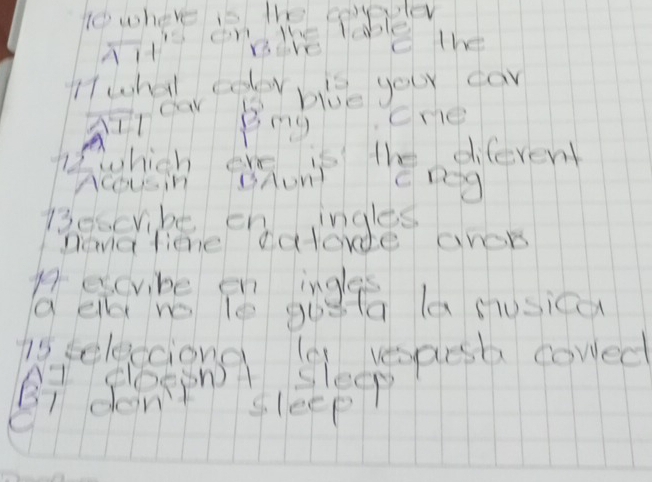 10 where is the computer
___ is on the table
A It B She C the
11 what color is your car
___ car is blue
A It B my C me
12 which one is the diferent
A cousin B Aunt C Dog
13 escribe en ingles
catorce anos
14 escribe en ingles
a ella no le gusta la musica
15 selecciona la respuesta correct
A I doesn't sleep
B I don't sleep
C